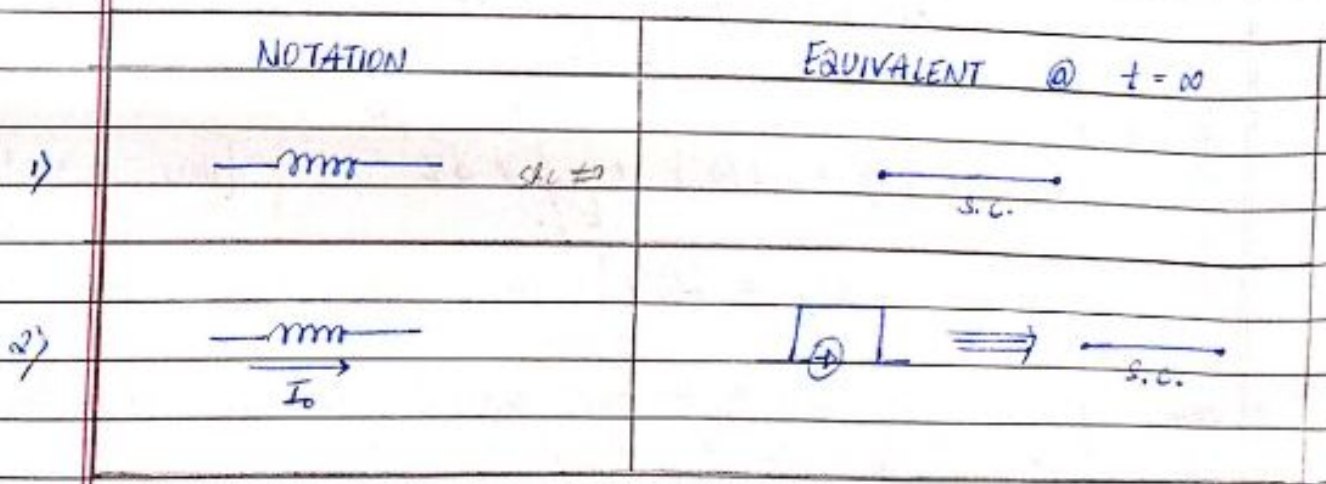 NOTATION
EQUIVALENT @ t = ∞
1)
S.C.
2)
I₀
S.C.